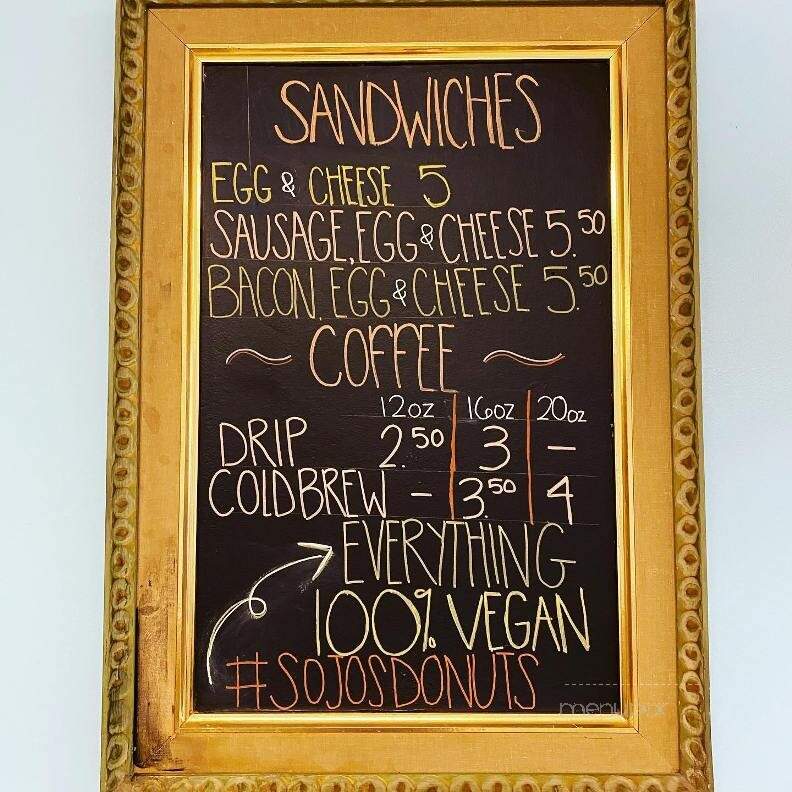 SANDWICHES
EGG & CHEESE 5
SAUSAGE, EGG & CHEESE 5.50
BACON, EGG & CHEESE 5.50
~ COFFEE ~
12oz 16oz 20oz
DRIP 2.50 3 -
COLDBREW - 3.50 4
EVERYTHING
100% VEGAN
#SOJOSDONUTS